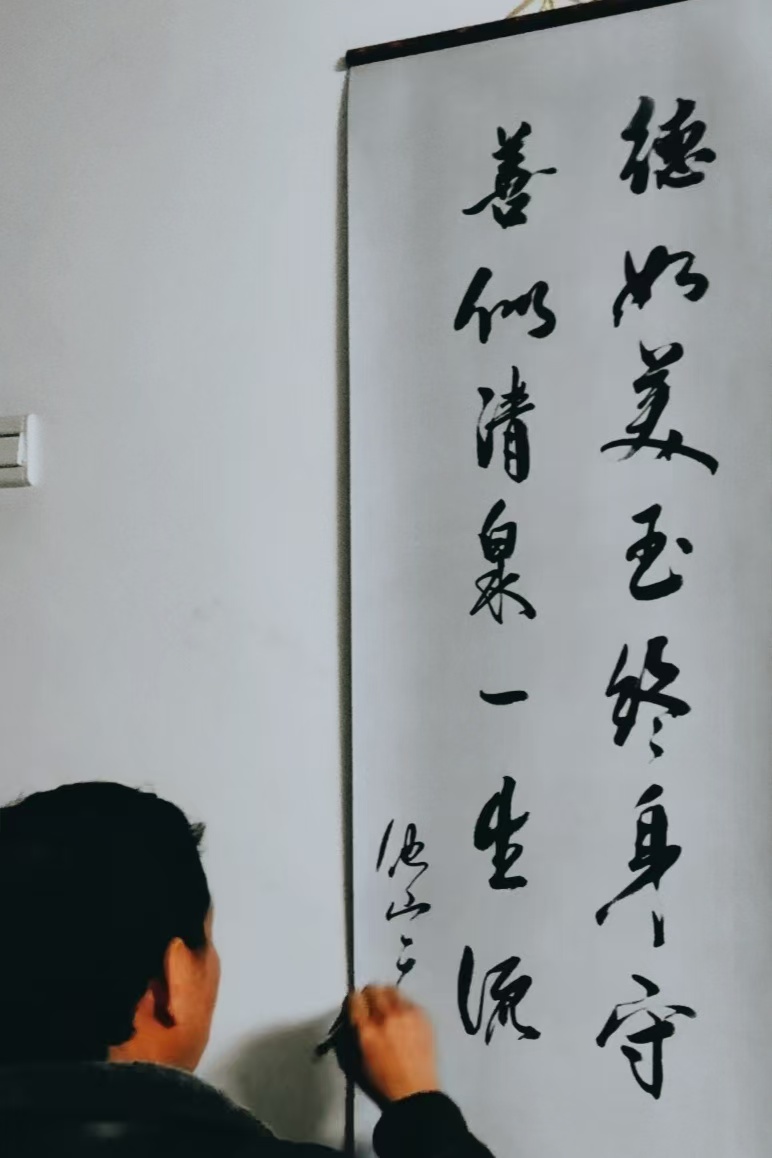 德如美玉终身守
善似清泉一生流
山